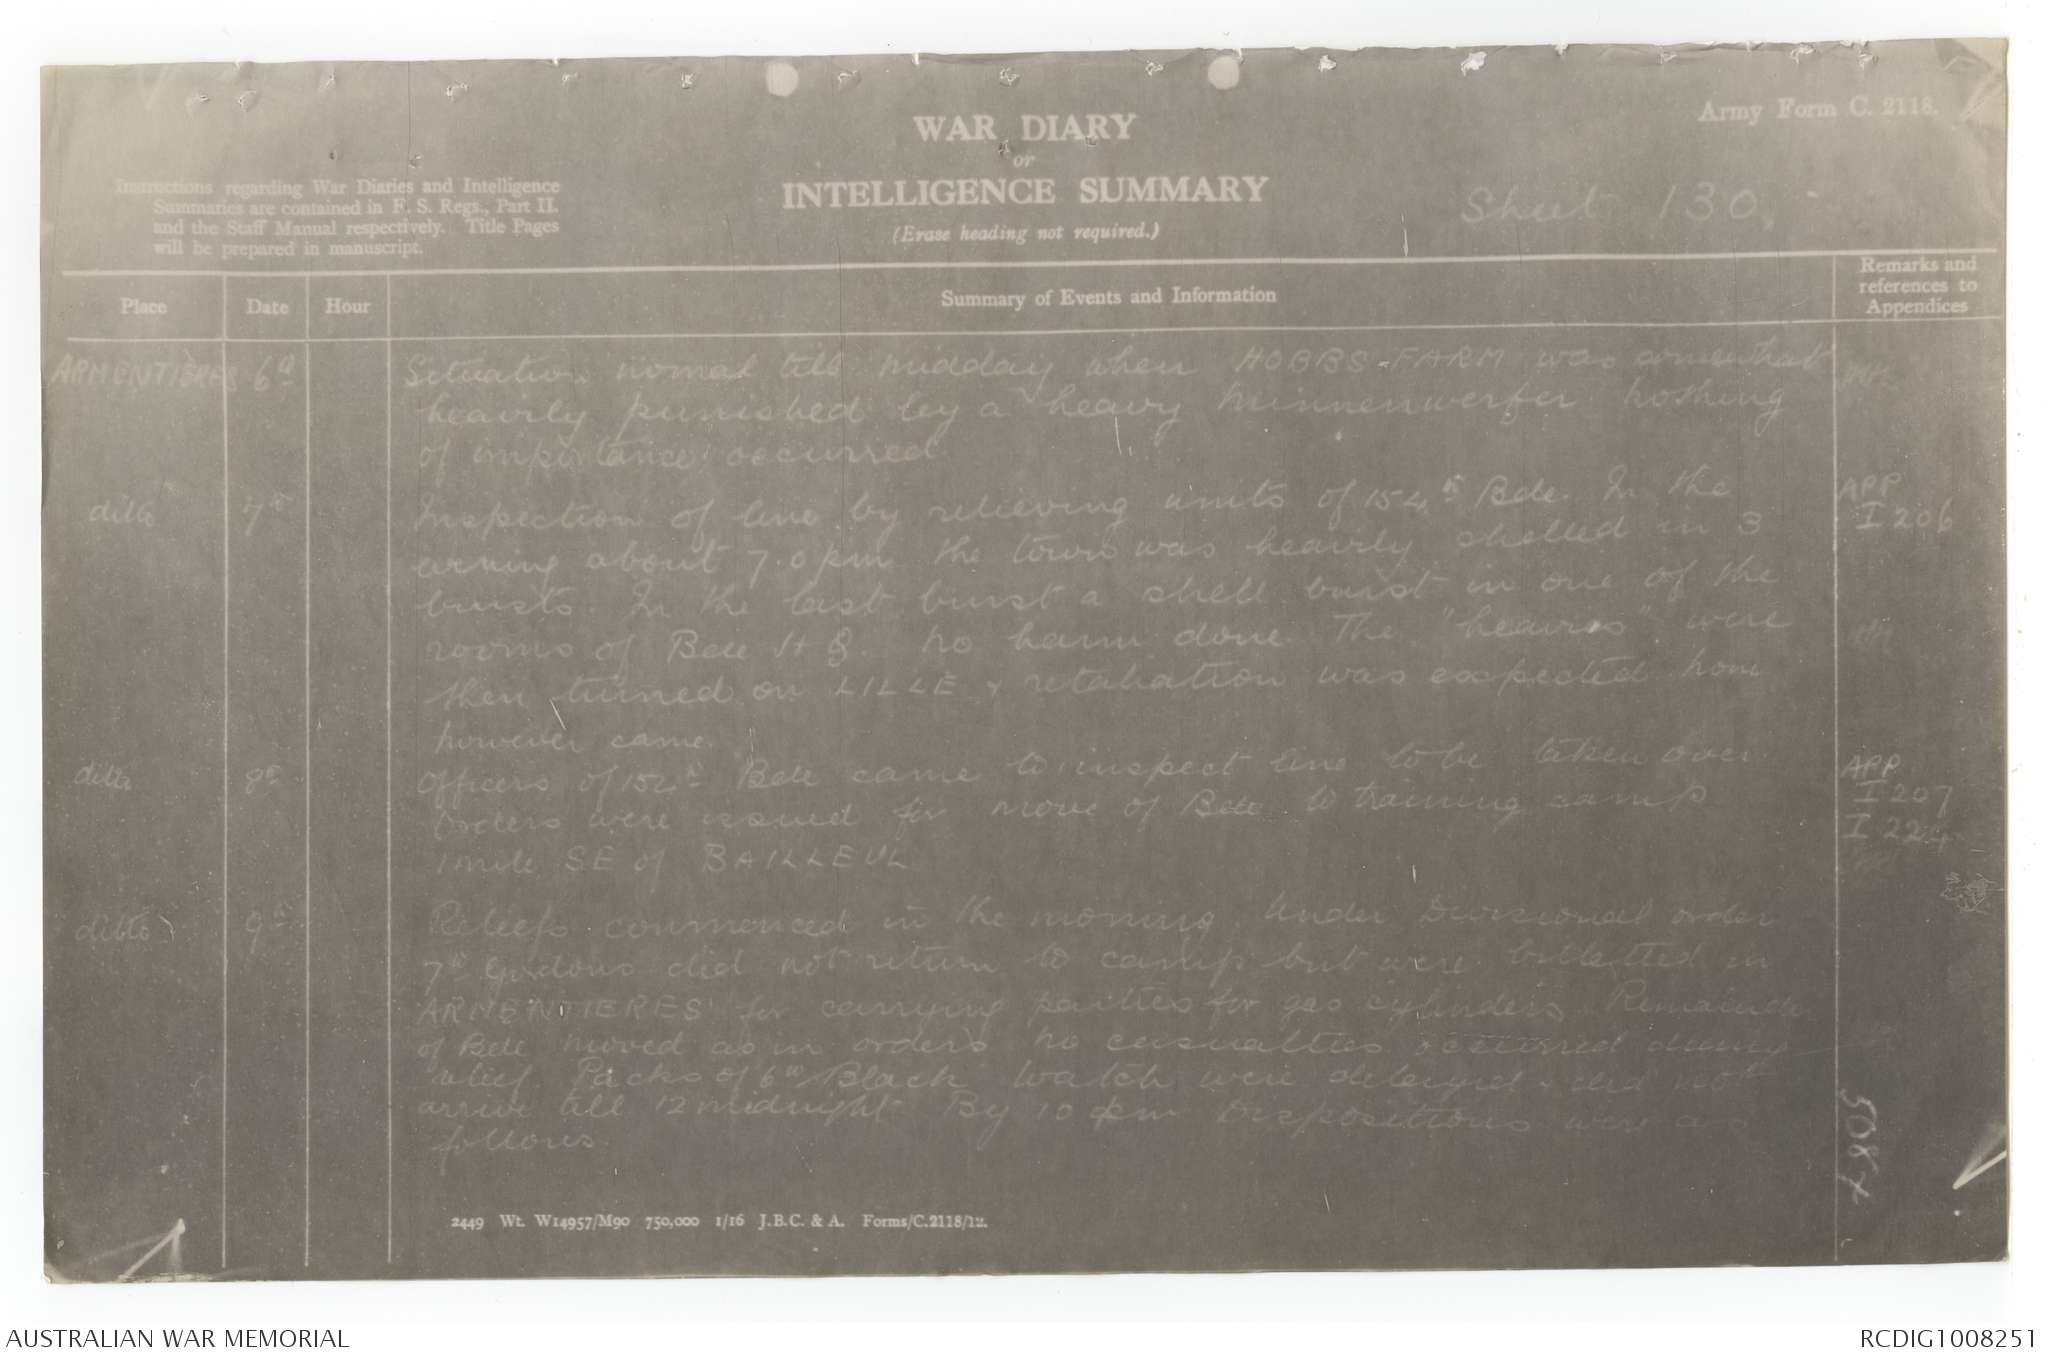 Army Form C. 2118.
WAR DIARY
or
INTELLIGENCE SUMMARY
(Erase heading not required.)
Instructions regarding War Diaries and Intelligence
Summaries are contained in F. S. Regs., Part II.
and the Staff Manual respectively. Title Pages
will be prepared in manuscript.
Sheet 130.
Place
Date
Hour
Summary of Events and Information
Remarks and
references to
Appendices
ARMENTIERES 6th
Situation normal till midday when HOBBS FARM was somewhat
heavily punished by a heavy minnenwerfer nothing
of importance occurred.
ditto 7th
Inspection of line by relieving units of 154th Bde. In the
evening about 7.0 pm the town was heavily shelled in 3
bursts. In the last burst a shell burst in one of the
rooms of Bde HQ. no harm done. The "heavies" were
then turned on LILLE & retaliation was expected
however came.
APP
I 206
ditto 8th
Officers of 152nd Bde came to inspect line to be taken over
Orders were issued for move of Bde to training camp
1 mile SE of BAILLEUL
APP
I 207
ditto 9th
Reliefs commenced in the morning. Under Divisional order
7th Gordons did not return to camp but were billetted in
ARMENTIERES for carrying parties for gas cylinders. Remainder
of Bde moved as in orders. no casualties occurred during
relief. Packs of 6th Black Watch were delayed & did not
arrive till 12 midnight. By 10 pm Dispositions were as
follows.
2449 Wt. W14957/M90 750,000 1/16 J.B.C. & A. Forms/C.2118/12.
AUSTRALIAN WAR MEMORIAL
RCDIG1008251